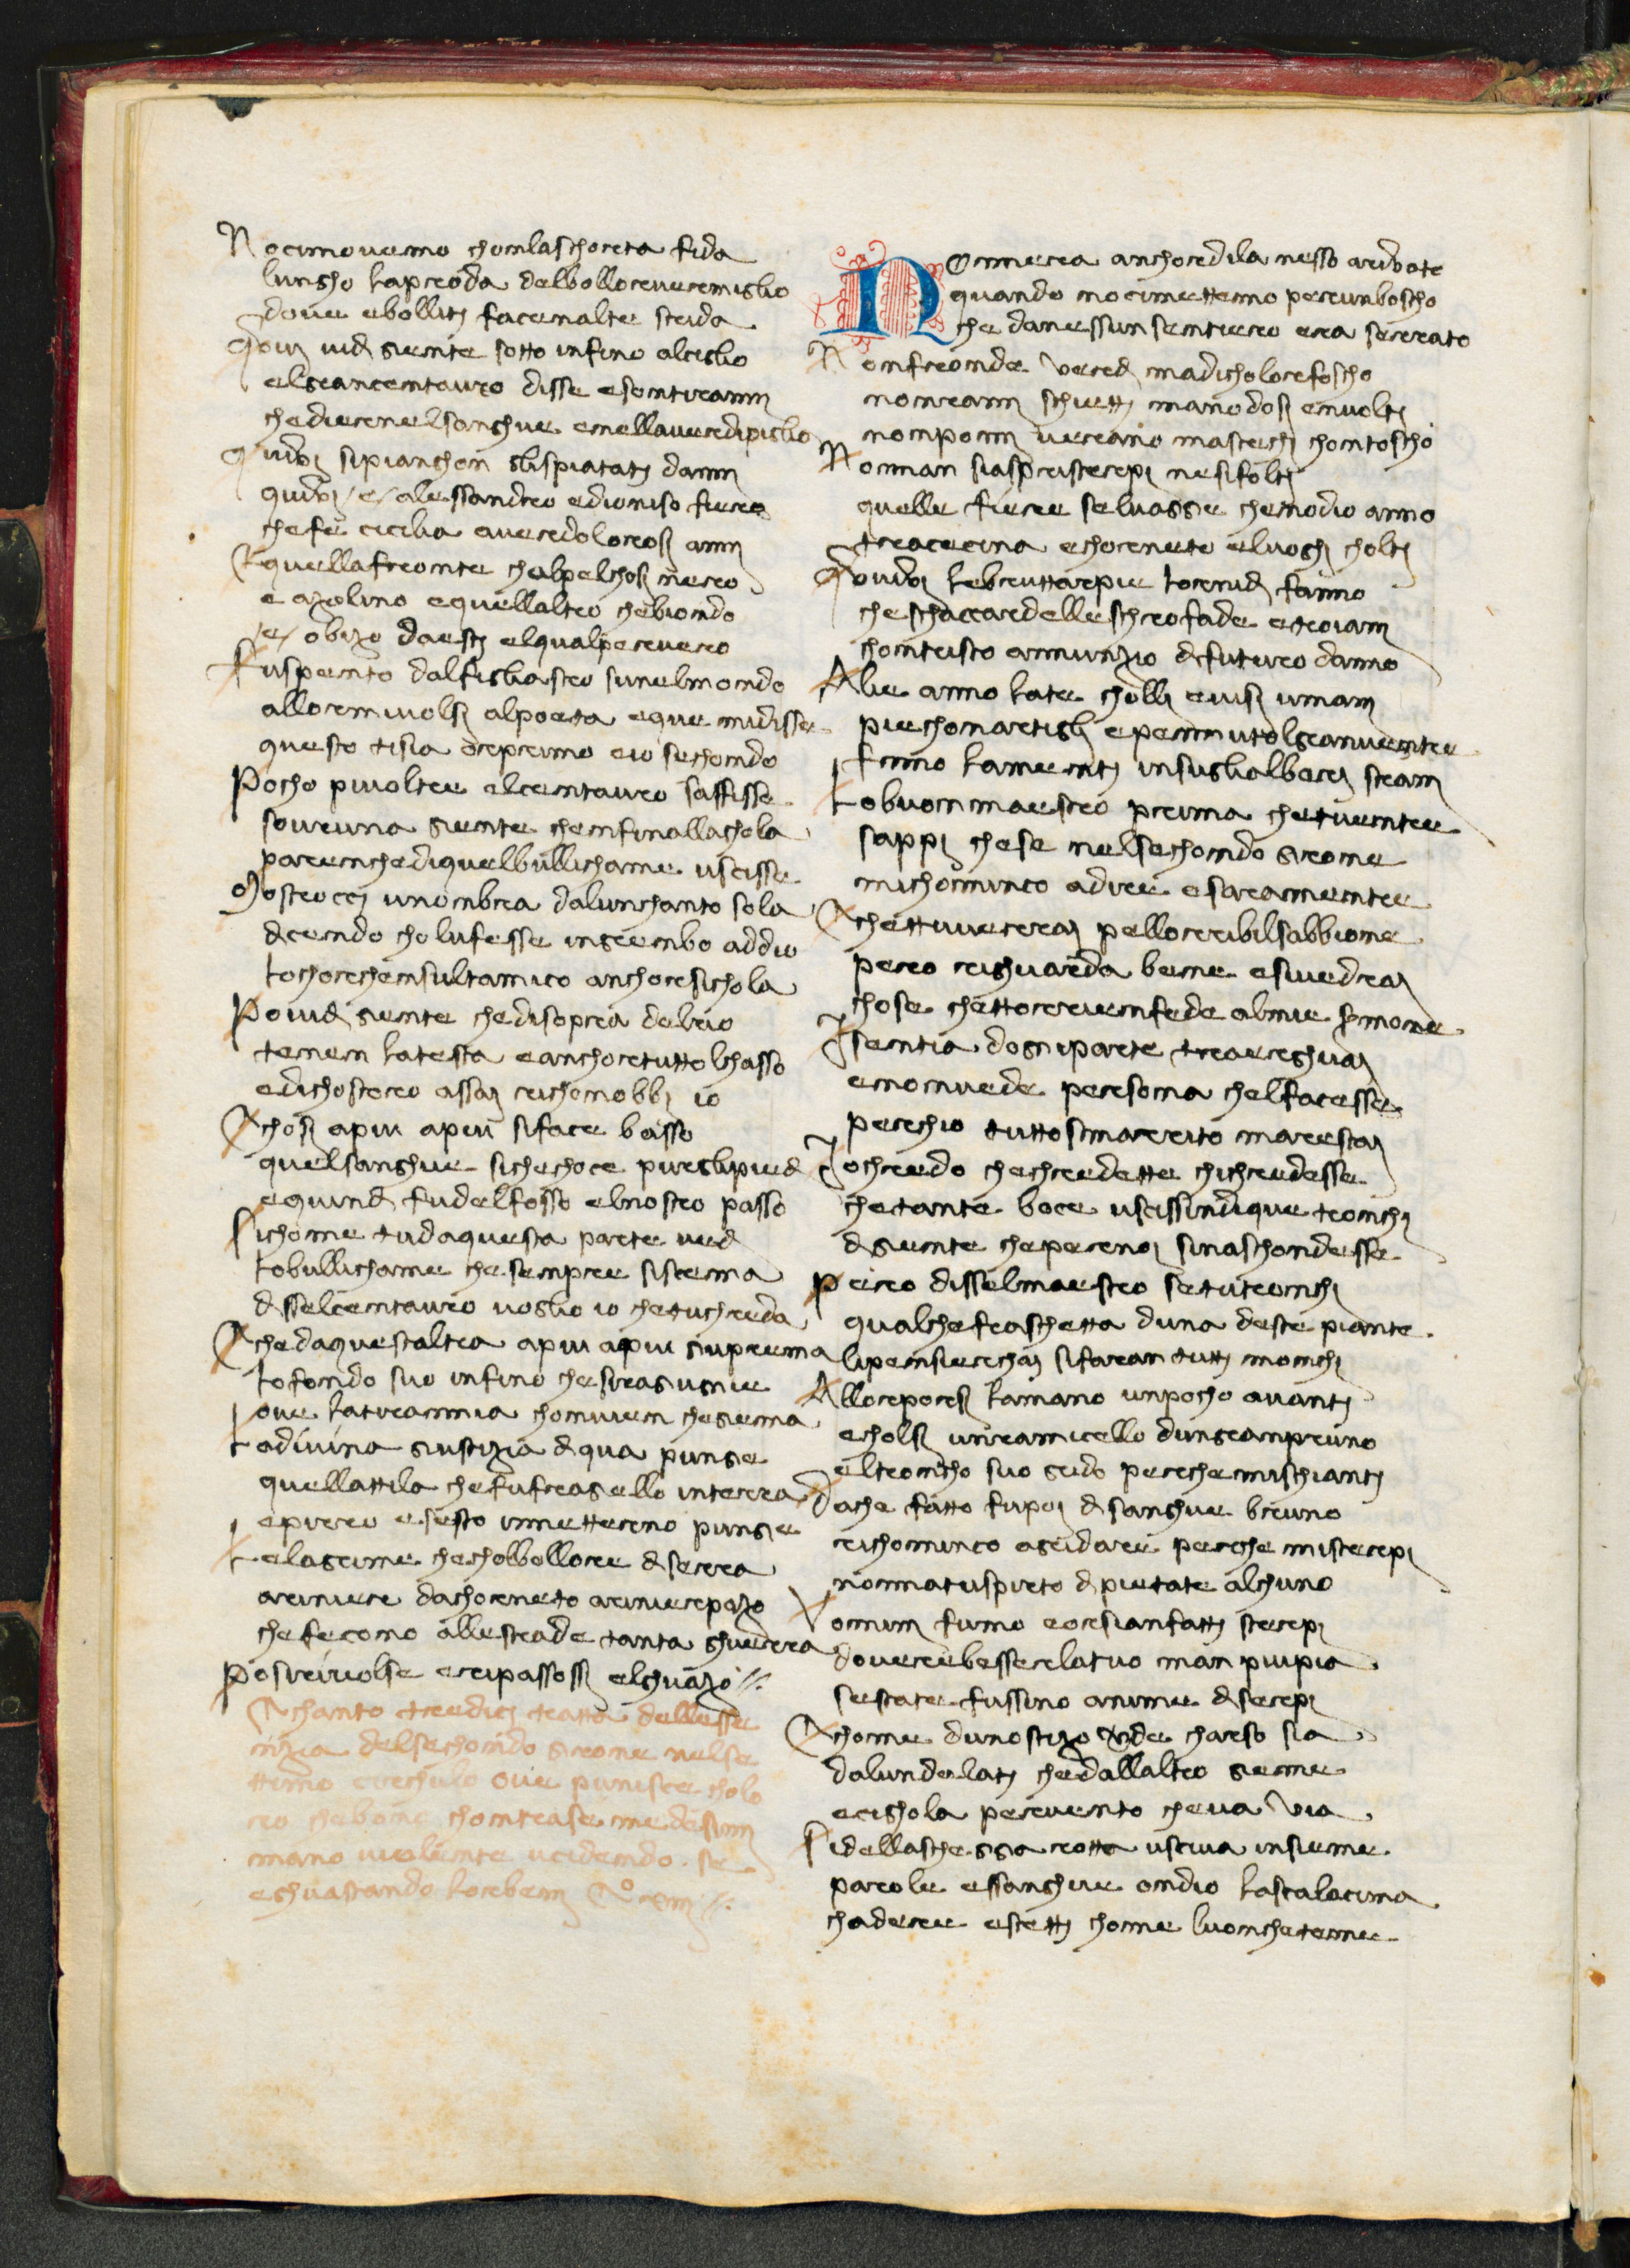 Nocimovemo chonlaschorta fida
lungho laproda delbollorevermiglio
dove ebolliti facenalte strida
Iovi vidi giente sotto infino alciglio
elgrancentauro disse esontiranni
chedierenelsanghue enellaverdipiglio
Quivi sipianghon glispiatati danni
quivi e alessandro edioniso fiero
chefe cicilia averdolorosi anni
Equellafronte chalpelchosi nero
e azolino equellaltro chebiondo
e obizo daesti elqualperuero
Fuspento dalfigliastro sunelmondo
allormivolsi alpoeta eque midisse
questo tisia orprimo eio sechondo
Pocho piuoltre elcentauro saffisse
sovruna giente chenfinallachola
pareanchediquelbullichame uscisse
Mostrocci unonbra dalunchanto sola
dicendo cholufesse ingrenbo addio
lochorchensultamico anchorsichola
Poividi giente chedisopra delrio
tenien latesta eanchortuttolchasso
edichostoro assai richonobbi io
Chosi apiu apiu siface basso
quelsanghue siche choce purglipiedi
equindi fudelfosso elnostro passo
Sichome tudaquesta parte vedi
lobullichame che senpre siscema
disselcentauro voglio io chetuchreda
Chedaquestaltra apiu apiu giuprema
lofondo suo infino chesiragiugnie
ove latirannia chonvien chegiema
Ladivina giustizia diqua punge
quellattila chefufragello interra
epirro esesto innetterno pungie
Lelagrime checholbollore diserra
arinier dachorneto arinierpazo
chefecono allestrade tanta ghuerra
Posirivolse eripassossi elghuazo
Chanto tredici tratta dellesse
nzia delsechondo girone nelse
ttimo circhulo ove punisce cholo
ro chebono chontrase medesimi
mano violente ucidendo se
eghuastando lorbeni
Nonnera anchordila nesso arivate
quando nocimettemo perunboscho
che danessun sentiero era serrato
Nonfronde verdi madicholorefoscho
nonrami schietti manodosi envolti
nonpomi verano mastechi chontoscho
Nonnan siaspristerpi nesifolti
quelle fiere selvaggie chenodio anno
tracecina echorneto eluoghi cholti
Quivi lebruttarpie lornidi fanno
cheschacciardellestrofade etroiani
chontristo annunzio difuturo danno
Alie anno late cholli evisi umani
piechonartigli epennutolgranventre
fanno lamenti insuglialberi strani
Lobuonmaestro prima chetuentre
sappi chese nelsechondo girone
michomincio adire esaraimentre
Chettuverrai nellorribilsabbione
pero righuarda bene esivedrai
chose chettorrienfede almie sermone
Isentia dogniparte traereghuai
enonvede persona chelfacesse
perchio tuttosmarrito marrestai
Iochredo chechredette chichredesse
chetante boce uscissindique tronchi
digiente chepernoi sinaschondesse
Pero disselmaestro setutronchi
qualchefraschetta duna deste piante
lipensierchai sifaran tutti monchi
Alloreporsi lamano unpocho avanti
echolsi unramicello dungranpruno
eltroncho suo grido perchemischianti
Dache fatto fupoi disanghue bruno
richomincio agridare perchemisterpi
nonnatuspirto dipietate alchuno
Uomini fumo eorsianfatti sterpi
doverebbesserlatuo man piupia
sestate fussimo anime diserpi
Chome dunostizo verde charso sia
dalundelati chedallaltro gieme
ecighola pervento cheva via
Sidellaschessia rotta usciva insieme
parole essanghue ondio lasciailacima
chadere estetti chome luonchetieme